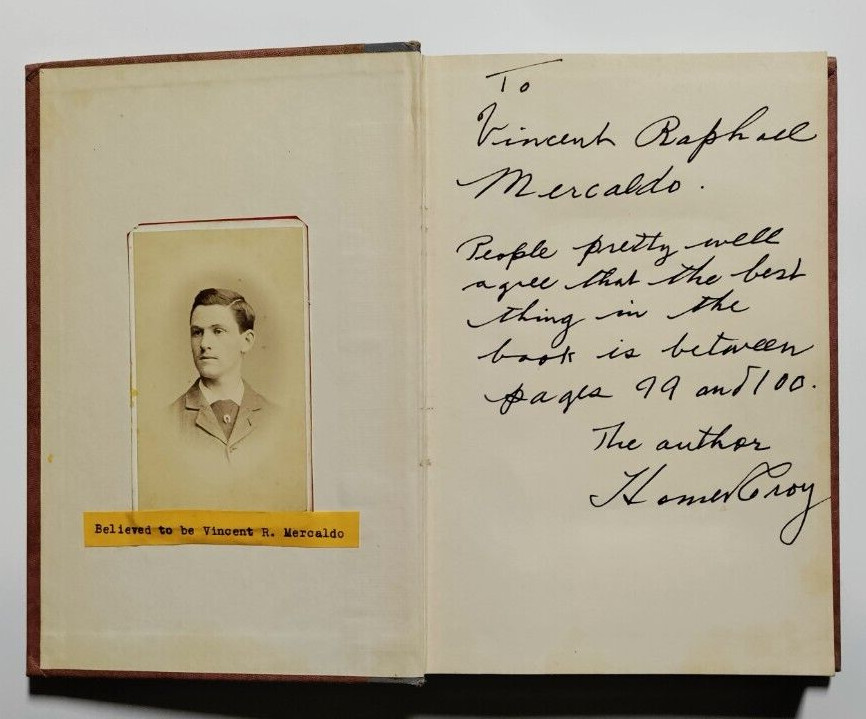 Believed to be Vincent R. Mercaldo
To
Vincent Raphael
Mercaldo.
People pretty well
agree that the best
thing in the
book is between
pages 99 and 100.
The author
Homer Croy